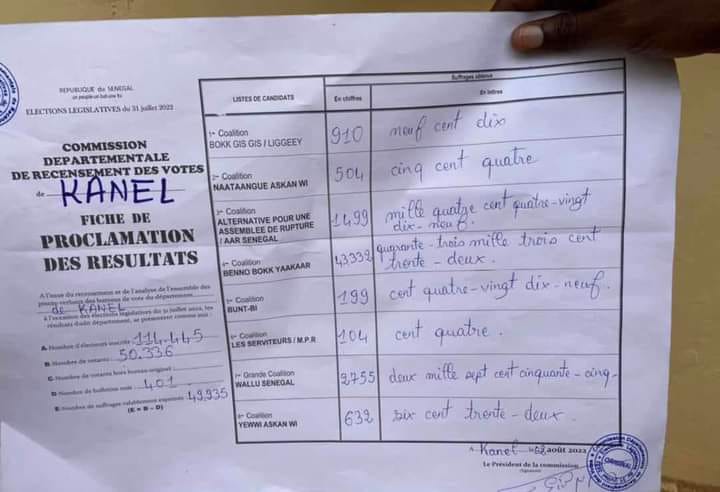 REPUBLIQUE du SENEGAL
un peuple-un but-une foi
ELECTIONS LEGISLATIVES du 31 juillet 2022
COMMISSION
DEPARTEMENTALE
DE RECENSEMENT DES VOTES
de KANEL
FICHE DE
PROCLAMATION
DES RESULTATS
A l'issue du recensement et de l'analyse de l'ensemble des
procès-verbaux des bureaux de vote du département
de KANEL
à l'occasion des élections législatives du 31 juillet 2022, les
résultats dudit département, se présentent comme suit :
A. Nombre d'électeurs inscrits 114.445
B. Nombre de votants 50.336
C. Nombre de votants hors bureau originel
D. Nombre de bulletins nuls 401
E. Nombre de suffrages valablement exprimés 49.935
(E = B - D)
LISTES DE CANDIDATS
Suffrages obtenus
En chiffres
En lettres
1re Coalition
BOKK GIS GIS / LIGGEEY
910
neuf cent dix
2e Coalition
NAATAANGUE ASKAN WI
504
cinq cent quatre
3e Coalition
ALTERNATIVE POUR UNE
ASSEMBLEE DE RUPTURE
/ AAR SENEGAL
1499
mille quatre cent quatre-vingt
dix-neuf.
4e Coalition
BENNO BOKK YAAKAAR
43332
quarante-trois mille trois cent
trente-deux.
5e Coalition
BUNT-BI
199
cent quatre-vingt dix-neuf.
6e Coalition
LES SERVITEURS / M.P.R
104
cent quatre.
7e Grande Coalition
WALLU SENEGAL
2755
deux mille sept cent cinquante-cinq-
8e Coalition
YEWWI ASKAN WI
632
six cent trente-deux.
A Kanel le 02 août 2022
Le Président de la commission
(Signature)